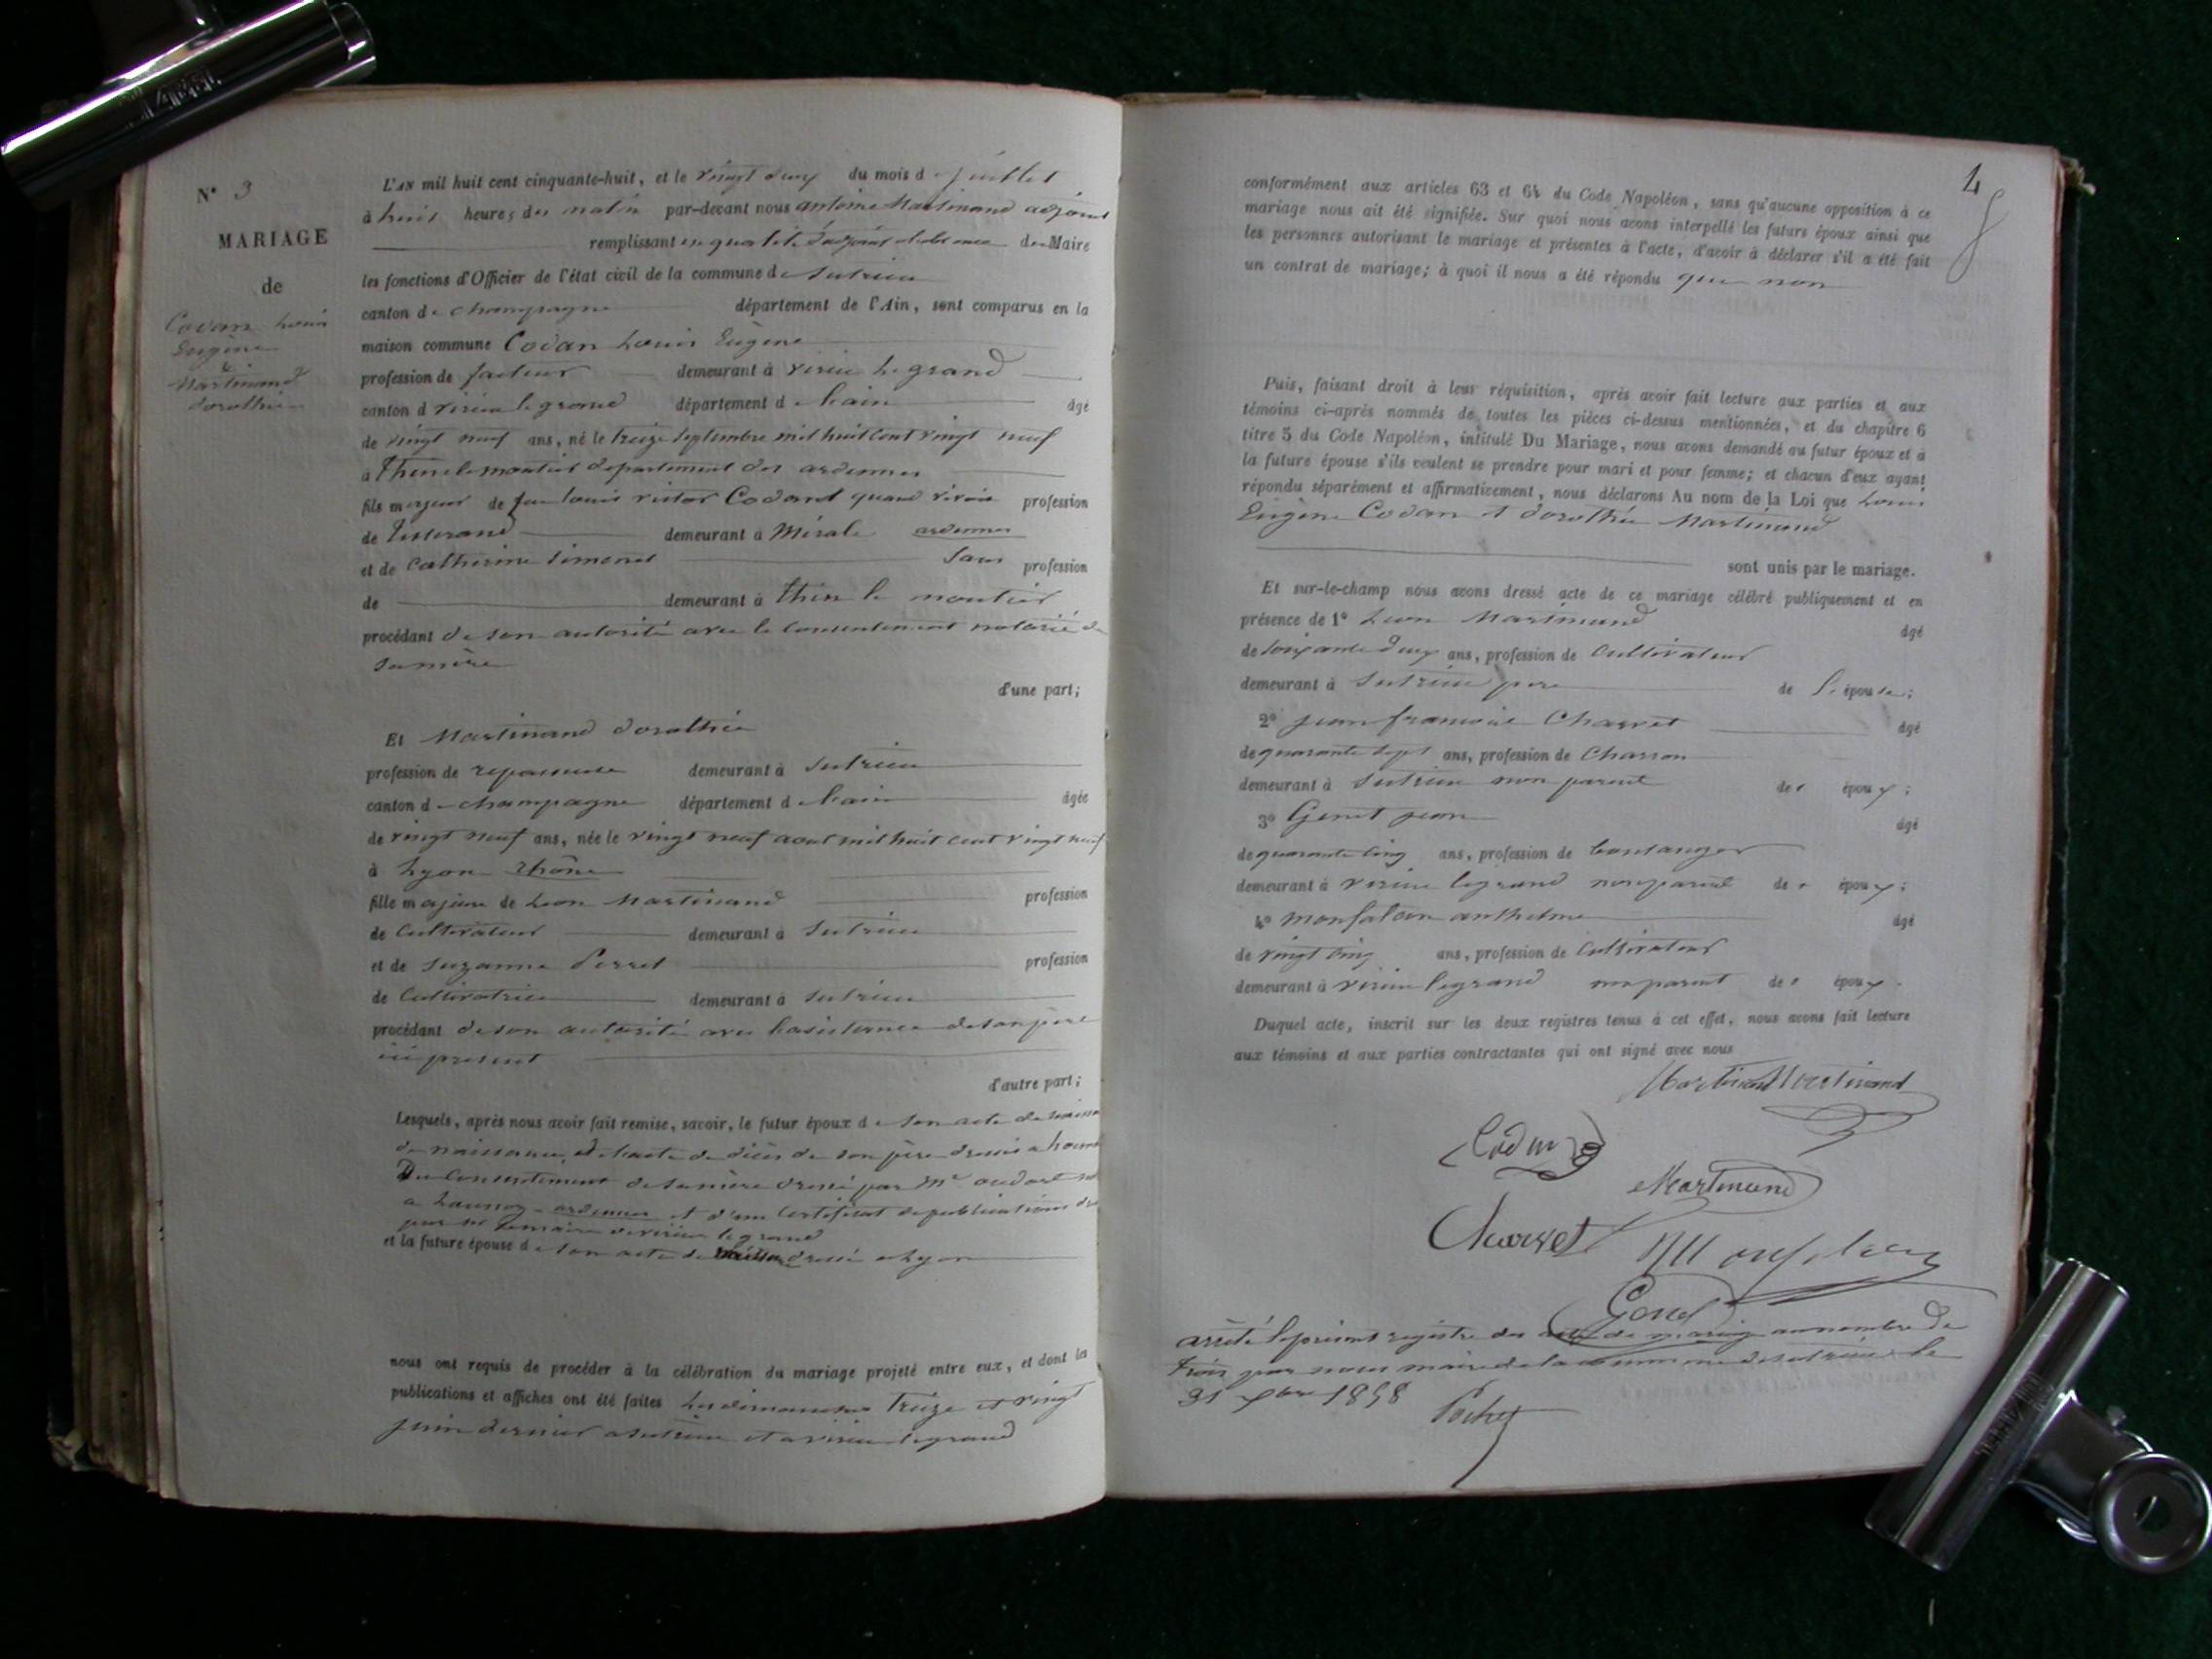 N° 3
MARIAGE
de
Codan Louis
Eugène
&
Martinand
dorothée
L'AN mil huit cent cinquante-huit, et le vingt deux du mois de juillet
à huit heures du matin par-devant nous antoine Martinand adjoint
remplissant en qualité d'adjoint du Maire
les fonctions d'Officier de l'état civil de la commune de Sutrieu
canton de champagne département de l'Ain, sont comparus en la
maison commune Codan Louis Eugène
profession de facteur demeurant à virieu le grand
canton d virieu le grand département de Lain âgé
de vingt neuf ans, né le treize septembre mil huit cent vingt neuf
à Thin le moutier departement des ardennes
fils majeur de feu louis victor Codand quand vivait profession
de Tisserand demeurant à ardennes
et de Catherine Simonet Sans profession
de demeurant à Thin le moutier
procédant de son autorité avec le consentement notarié de
sa mère
d'une part;
Et Martinand dorothée
profession de repasseuse demeurant à Sutrieu
canton de champagne département de Lain âgée
de vingt neuf ans, née le vingt neuf aout mil huit cent vingt neuf
à Lyon Rhône
fille majeure de Leon Martinand profession
de Cultivateur demeurant à Sutrieu
et de Suzanne Perret profession
de Cultivatrice demeurant à Sutrieu
procédant de son autorité avec lasistance de son père
ici present
d'autre part;
Lesquels, après nous avoir fait remise, savoir, le futur époux de son acte de
de naissance, et lacte de décès de son père dressés a
Du Consentement de sa mère dressé par Me oudart
a Launoy ardennes et d'un Certificat de publications
par Mr le maire de virieu le grand
et la future épouse de son acte de dressé a Lyon
nous ont requis de procéder à la célébration du mariage projeté entre eux, et dont les
publications et affiches ont été faites Les dimanches Treize et vingt
juin dernier a Sutrieu et a virieu le grand
4
conformément aux articles 63 et 64 du Code Napoléon, sans qu'aucune opposition à ce
mariage nous ait été signifiée. Sur quoi nous avons interpellé les futurs époux ainsi que
les personnes autorisant le mariage et présentes à l'acte, d'avoir à déclarer s'il a été fait
un contrat de mariage; à quoi il nous a été répondu que non
Puis, faisant droit à leur réquisition, après avoir fait lecture aux parties et aux
témoins ci-après nommés de toutes les pièces ci-dessus mentionnées, et du chapitre 6
titre 5 du Code Napoléon, intitulé Du Mariage, nous avons demandé au futur époux et à
la future épouse s'ils veulent se prendre pour mari et pour femme; et chacun d'eux ayant
répondu séparément et affirmativement, nous déclarons Au nom de la Loi que Louis
Eugène Codan et dorothée Martinand
sont unis par le mariage.
Et sur-le-champ nous avons dressé acte de ce mariage célébré publiquement et en
présence de 1° Leon Martinand âgé
de soixante deux ans, profession de Cultivateur
demeurant à Sutrieu pere de l'épouse;
2° jean francois Charvet âgé
de quarante sept ans, profession de Charron
demeurant à Sutrieu non parent des époux;
3° Genet jean âgé
de quarante cinq ans, profession de boulanger
demeurant à virieu legrand non parent des époux;
4° monfalcon anthelme âgé
de vingt cinq ans, profession de Cultivateur
demeurant à virieu legrand non parent des époux.
Duquel acte, inscrit sur les deux registres tenus à cet effet, nous avons fait lecture
aux témoins et aux parties contractantes qui ont signé avec nous
Martinand Martinand
Codan
Martinand
Charvet
arrété le présent registre des actes de mariage au nombre de
trois par nous maire de la commune de Sutrieu le
31 xbre 1858